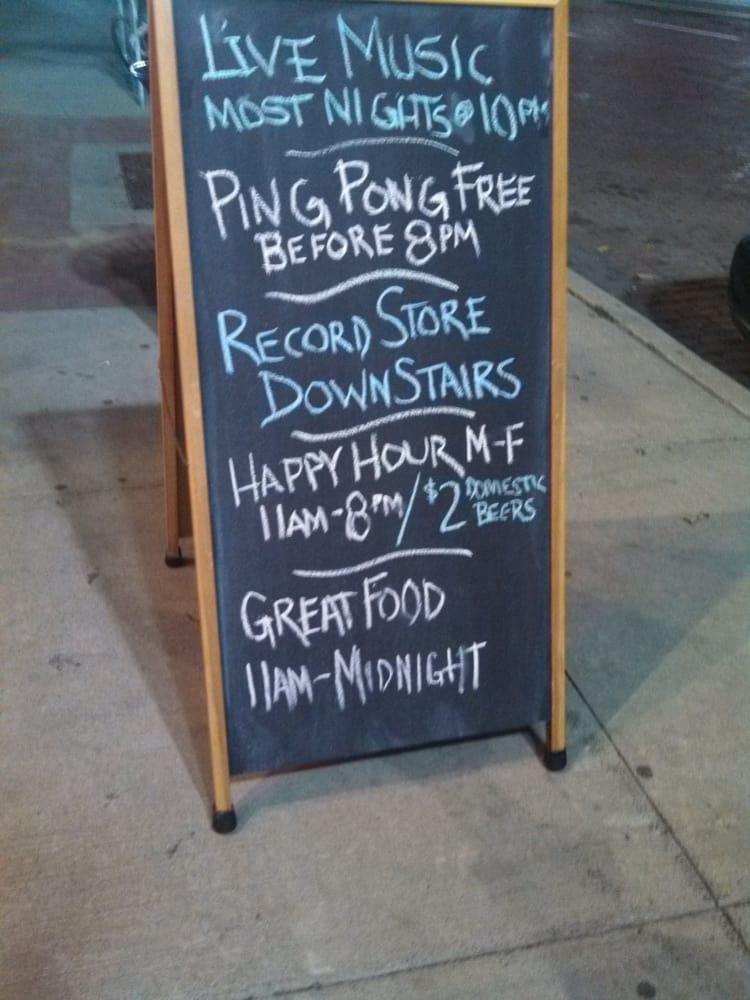 LIVE MUSIC
MOST NIGHTS @ 10PM
PING PONG FREE
BEFORE 8PM
RECORD STORE
DOWNSTAIRS
HAPPY HOUR M-F
11AM-8PM/$2 DOMESTIC BEERS
GREAT FOOD
11AM-MIDNIGHT